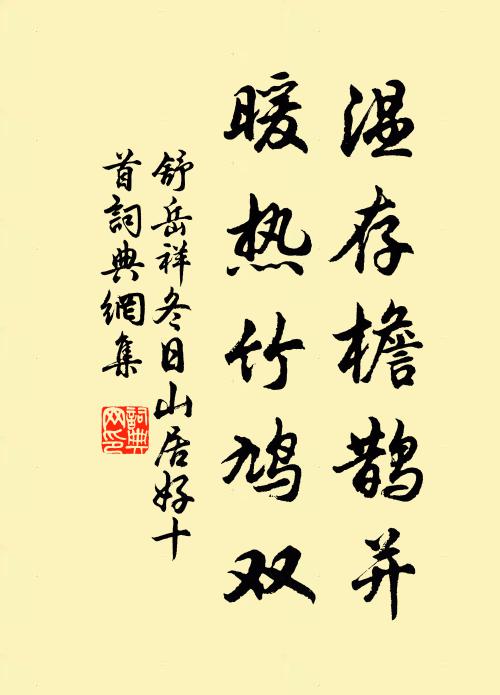 温存檐鹊并
暖热竹鸠双
舒岳祥冬日山居好十
首詞典網集
詞典
网印